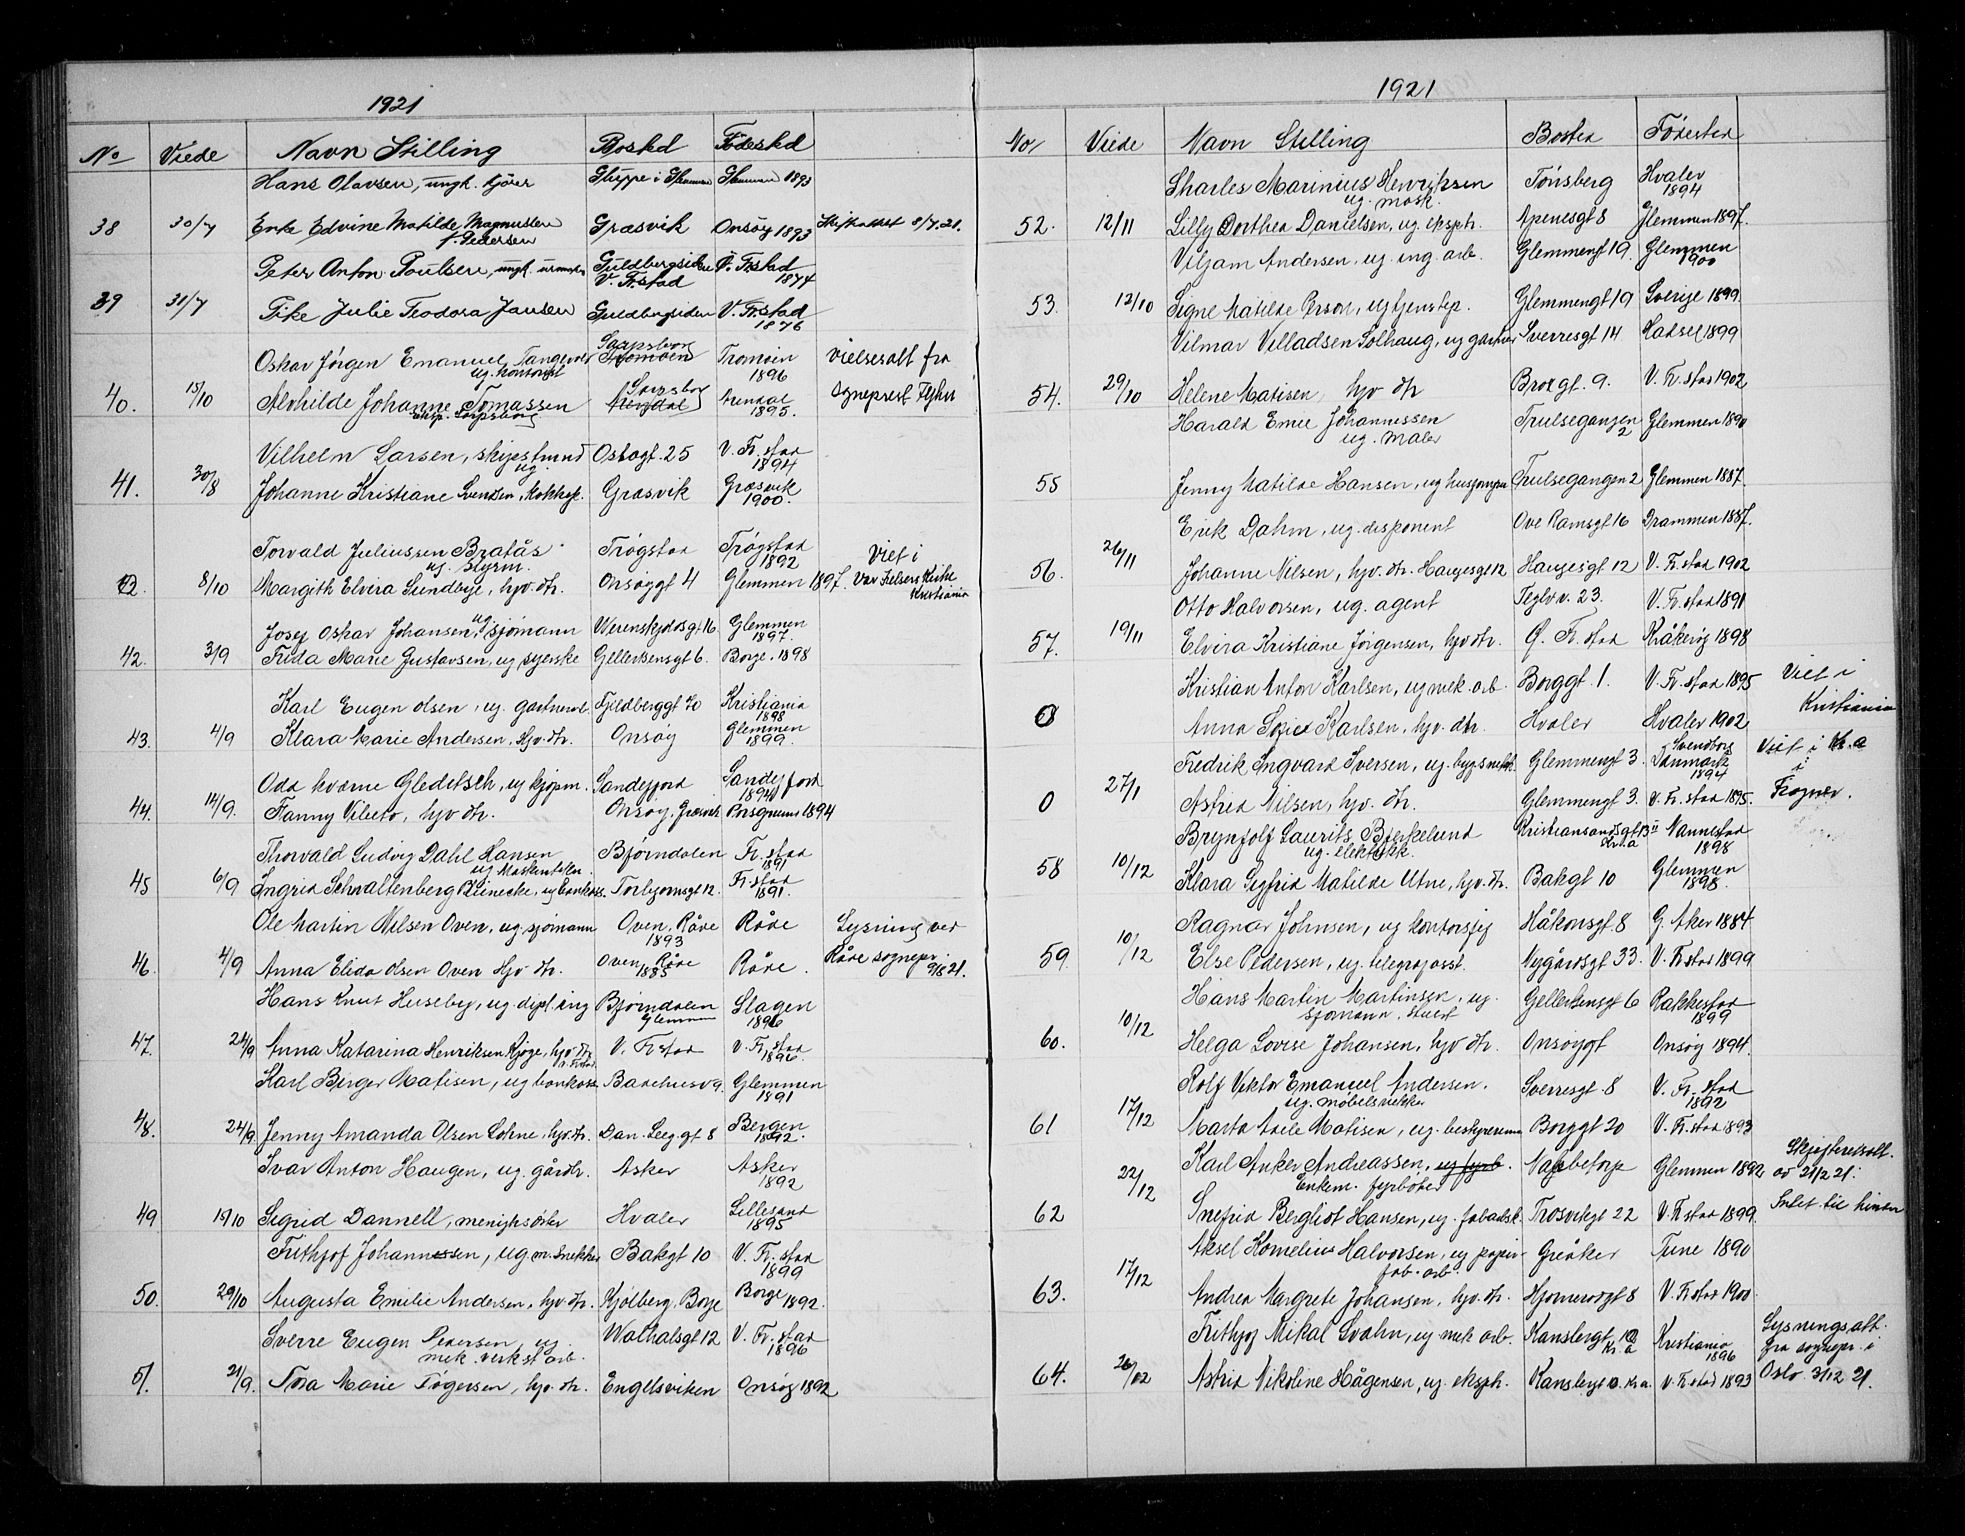 1921
No Viede Navn Stilling Bosted Fødested
Hans Olavsen, ungk. kjører Gluppe i 1893
38 30/7 Enke Edvine Matilde Magnussen Græsvik Onsøy 1893 Skifteattest 8/7.21.
f. Pedersen
Peter Anton Poulsen, ungk. Guldbergsiden Ø. Fr.stad
V. Fr.stad 1874
39 31/7 Pike Julie Teodora Jansen Guldbergsiden V. Fr.stad
1876
Oskar Jörgen Emanuel Tangevold Sarpsborg Tromøen Tromøen vielsesatt fra
ug. kontorist 1896
40. 15/10 Alvhilde Johanne Tomassen Sarpsborg Arendal Arendal Sogneprest
eksp. Sarpsborg 1895.
Vilhelm Larsen, skipstmnd Ostogt. 25 V. Fr. stad
ug. 1894
41. 30/8 Johanne Kristiane Svensen, Kokkep. Græsvik Græsvik
1900.
Torvald Juliussen Bratås Trøgstad Trøgstad Viet i
ug. styrm. 1892
8/10 Margith Elvira Sundbye, hjv. dtr. Onsøygt 4 Glemmen 1897. Vår Frelsers Kirke
Kristiania
Josef Oskar Johansen, ug. sjømann Werenskjoldsgt 16 Glemmen
1897.
42. 3/9 Frida Marie Gustavsen, ug syerske Gellertsensgt 6. Borge. 1898
Karl Eugen Olsen, ug. gartnerarb. Fjeldberggt 70 Kristiania
1898
43. 4/9 Klara Marie Andersen, Hjv. dtr. Onsøy Glemmen
1899.
Odd Kværne Gleditsch, ug kjøpm. Sandefjord Sandefjord
1894
44. 14/9. Fanny Vibeto, hjv dtr. Onsøy, Græsvik Porsgrund 1894
Thorvald Ludvig Dahl Hansen Bjørndalen Fr. stad
ug Maskintekn. 1891
45 6/9 Ingrid Schwaltenberg Reinecke, ug bankass. Torbjornsgt 12. Fr. stad
1891.
Ole Martin Nilsen Oven, ug. sjømann Oven, Råde Råde Lysning ved
1893
46. 4/9 Anna Elida Olsen Oven Hjv dtr. Oven, Råde Råde. Råde sognepr.
1885 9/8 21.
Hans Knut Huseby, ug. dipl. ing Bjørndalen Slagen
Glemmen 1896
47. 24/9 Anna Katarina Henriksen Kjøge, hjv dtr V. Fr stad V. Fr. stad
1896.
Karl Birger Matisen, ug bankass Glemmen
1891
48. 24/9. Jenny Amanda Olsen Lohne, hjv. dtr. Dan. Leeg gt 8 Bergen
1892.
Ivar Anton Haugen, ug. gårdbr. Asker Asker
1892
49 15/10 Sigrid Dannell, menighsøster Hvaler Lillesand
1895
Frithjof Johannessen, ug. m. snekker Bakgt 10 V. Fr. stad
1899
50. 29/10 Augusta Emilie Andersen, hjv. dtr. Kjølberg, Borge Borge 1892.
Sverre Eugen Pedersen, ug Walhalsgt 12 V. Fr. stad
mek. verkst arb. 1896
51. 21/9. Tora Marie Tøgersen, hjv. dtr. Engelsviken Onsøy 1892
1921
No Viede Navn Stilling Bosted Fødested
Sharles Marinius Henriksen Tönsberg Hvaler
ug. mask. 1894
52. 12/11 Lilly Dorthea Danielsen, ug. eksph. Apenesgt 8 Glemmen 1897.
Viljam Andersen, ug. ing. arb. Glemmengt 19. Glemmen
1900
53. 12/10 Signe Matilde Person, ug tjenstep. Glemmengt 19 Sverige 1899
Vilmar Villadsen Solhaug, ug gartner Sverresgt 14 Hadsel 1899
54. 29/10 Helene Matisen, hjv dtr Brogt. 9. V. Fr. stad 1902
Harald Emil Johannessen Trulsegangen Glemmen 1890
ug. maler 2
55 Jenny Matilde Hansen, ug husjomfru Trulsegangen 2 Glemmen 1887.
Erik Dahm, ug. disponent Ove Ramsgt 16 Drammen 1887.
56. 26/11 Johanne Nilsen, hjv. dtr. Haugesgt 12 Haugesgt 12 V. Fr. stad 1902
Otto Halvorsen, ug. agent Teglv. 23. V. Fr. stad 1891
57. 19/11 Elvira Kristiane Jörgensen, hjv dtr. Ø. Fr. stad Kråkerøy 1898
Kristian Anton Karlsen, ug mek. arb. Borggt. 1. V. Fr. stad 1895 Viet i
0 Anna Sofie Karlsen, hjv. dtr. Hvaler Hvaler 1902 Kristiania
Fredrik Ingvard Iversen, ug. Glemmengt 3. Svendborg Viet i Kr.a
Danmark i
1894
0 27/1 Astrid Nilsen, hjv. dtr. Glemmengt 3. V. Fr. stad 1895. Frogner.
Brynjolf Laurits Bjerkelund Kristiansandsgt 13 II Nannestad
ug. elektrikk. Kr.a 1898
58 10/12 Klara Sigfrid Matilde Utne, hjv. dtr. Bakgt 10 Glemmen
1898.
Ragnar Johnsen, ug kontorsjef Håkonsgt. 8 G. Aker 1884
59. 10/12 Else Pedersen, ug. telegrafasst. Nygårdsgt 33. V. Fr stad 1899
Hans Martin Martinsen, ug. Gellertsensgt 6 Rakkestad
sjømann, stuert 1899
60. 10/12 Helga Lovise Johansen, hjv dtr. Onsøygt Onsøy 1894.
Rolf Viktor Emanuel Andersen. Sverresgt. 8 V. Fr. stad
ug. møbelsnekker 1892
61 17/12 Marta Adele Matisen, ug. bestyrerinne Borggt 20 V. Fr. stad 1893
Karl Anker Andreassen, ug fyrb. Nabbetorp Glemmen 1892 Skifteretsatt.
Enkem. fyrbøter av 21/12 21.
62 22/12 Snefrid Bergliot Hansen, ug. Trosvikgt 22 V. Fr stad 1899. Intet til hinder
Aksel Kornelius Halvorsen, ug papir Greåker Tune 1890
fab. arb.
63. 17/12 Andrea Margrete Johansen, hjv. dtr. 8 V. Fr stad 1900.
Frithjof Mikal Svahn, ug mek arb. Kr.a Kristiania Lysningsatt.
1896 fra sognepr. i
64. 26/12 Astrid Nikoline Hågensen, ug. eksph. Kr.a. V. Fr stad 1893 Oslo 3/12 21.